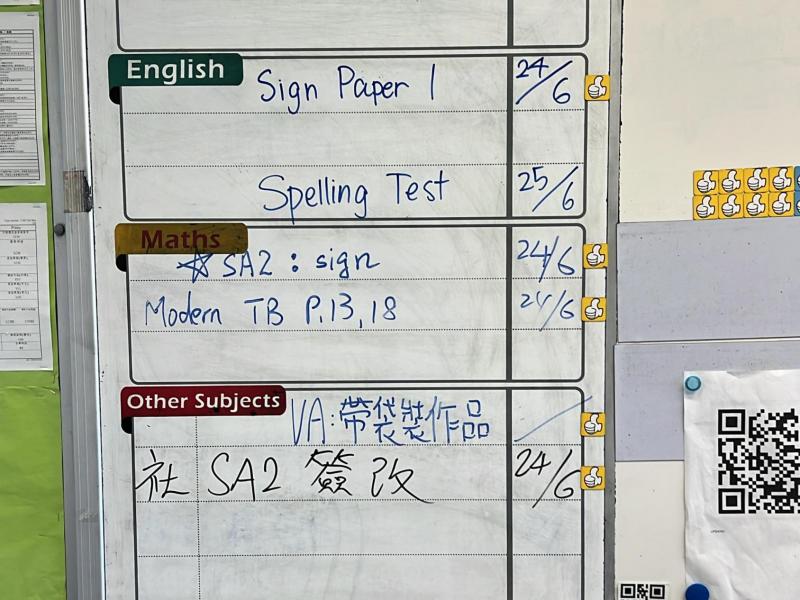 English
Sign Paper 1 24/6
Spelling Test 25/6
Maths
☆ SA2 : sign 24/6
Modern TB P.13,18 24/6
Other Subjects
VA:帶袋裝作品
社 SA2 簽改 24/6